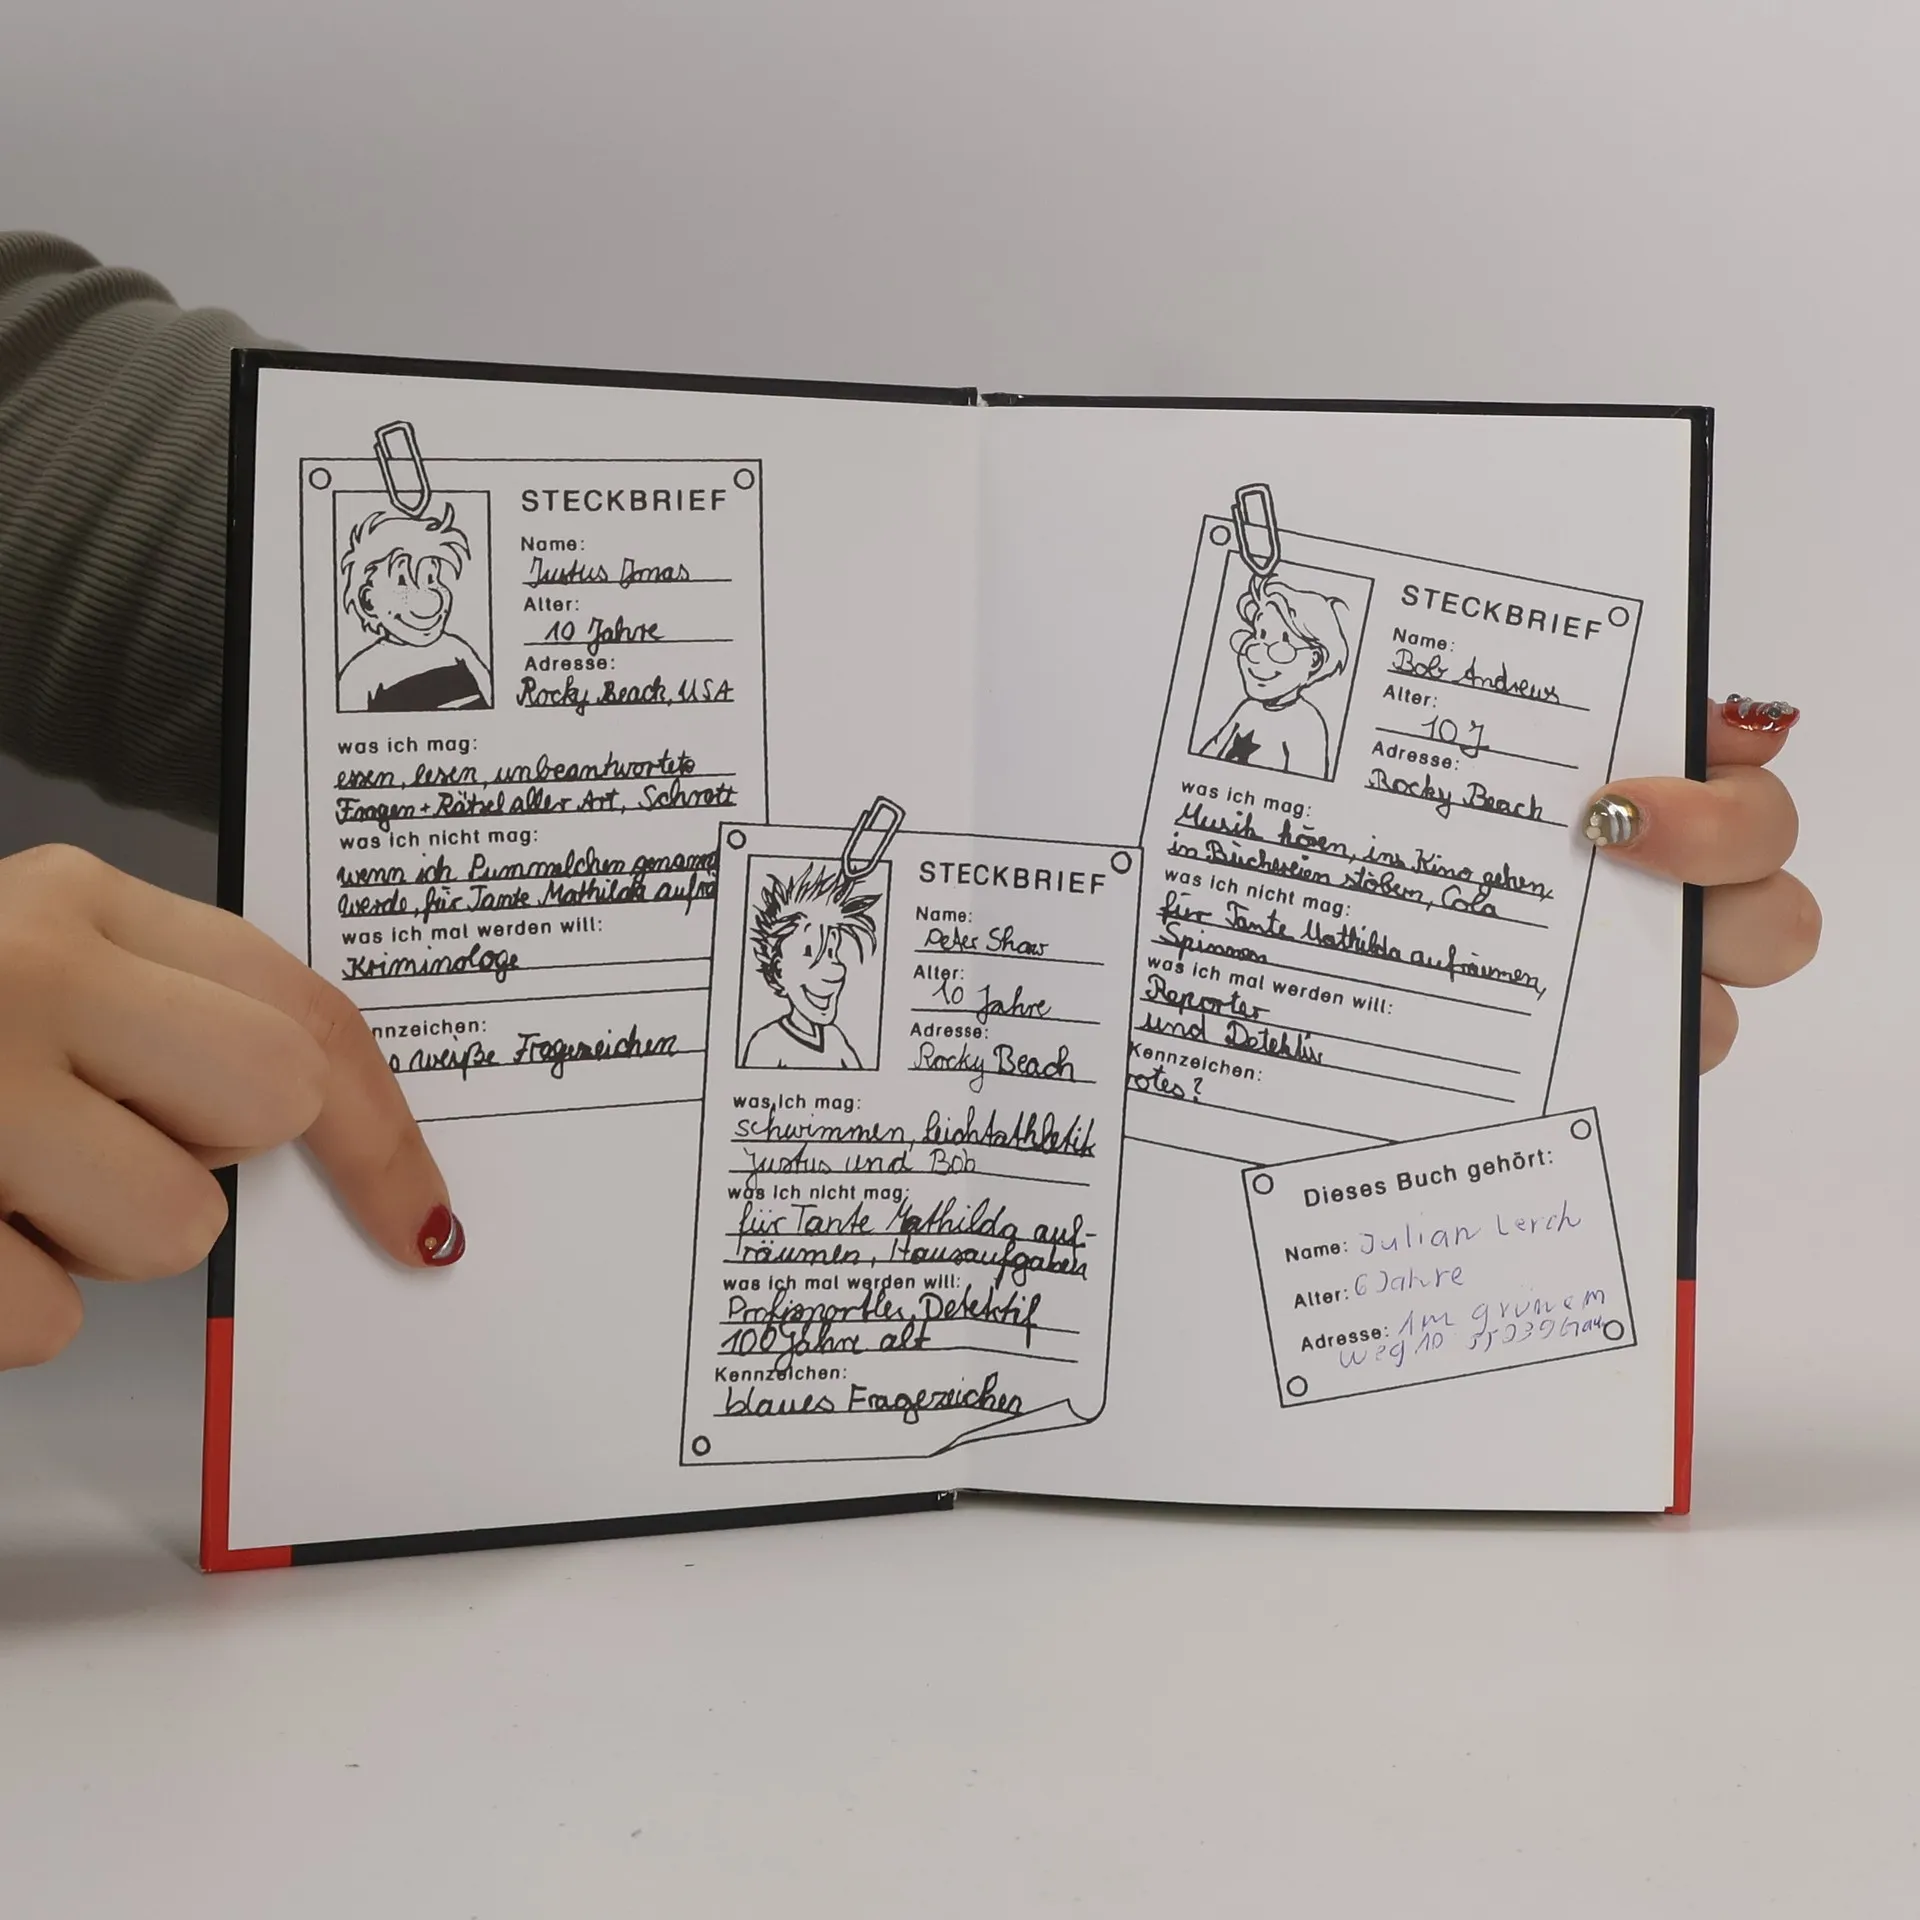 STECKBRIEF
Name:
Justus Jonas
Alter:
10 Jahre
Adresse:
Rocky Beach, USA
was ich mag:
essen, lesen, unbeantwortete
Fragen + Rätsel aller Art, Schrott
was ich nicht mag:
wenn ich Pummelchen genannt
werde, für Tante Mathilda aufrä
was ich mal werden will:
Kriminologe
nnzeichen:
weiße Fragezeichen
STECKBRIEF
Name:
Peter Shaw
Alter:
10 Jahre
Adresse:
Rocky Beach
was ich mag:
schwimmen, Leichtathletik
Justus und Bob
was ich nicht mag:
für Tante Mathilda auf-
räumen, Hausaufgaben
was ich mal werden will:
Profisportler, Detektif
100 Jahre alt
Kennzeichen:
blaues Fragezeichen
STECKBRIEF
Name:
Bob Andrews
Alter:
10 J
Adresse:
Rocky Beach
was ich mag:
Musik hören, ins Kino gehen,
in Büchereien stöbern, Cola
was ich nicht mag:
für Tante Mathilda aufräumen,
Spinnen
was ich mal werden will:
Reporter
und Detektiv
Kennzeichen:
rotes ?
Dieses Buch gehört:
Name: Julian Lerch
Alter: 6 Jahre
Adresse: Am grünem
Weg 10